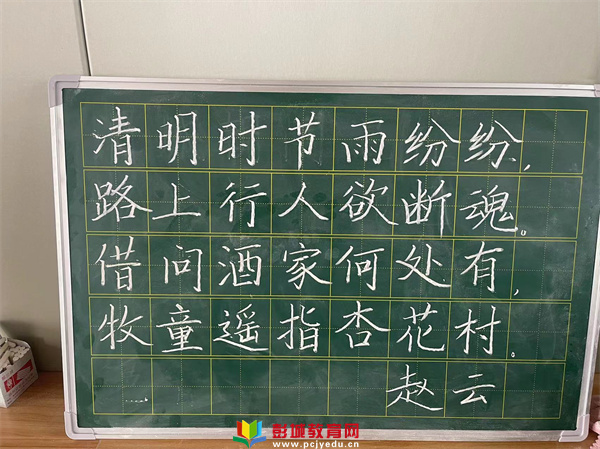 清明时节雨纷纷,
路上行人欲断魂。
借问酒家何处有,
牧童遥指杏花村。
赵云
彭城教育网
www.pcjyedu.cn